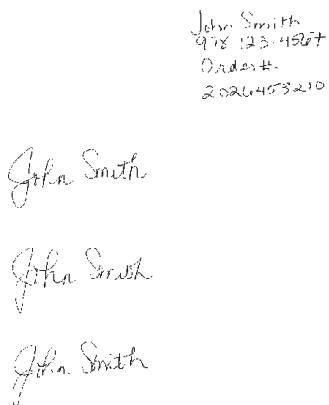 John Smith
978 123-4567
Order #:
2026453210
John Smith
John Smith
John Smith